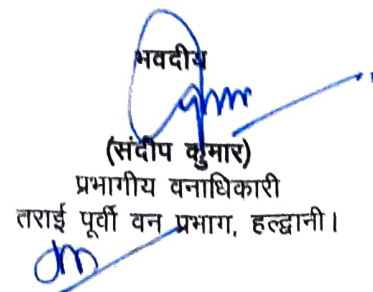 भवदीय
(संदीप कुमार)
प्रभागीय वनाधिकारी
तराई पूर्वी वन प्रभाग, हल्द्वानी।